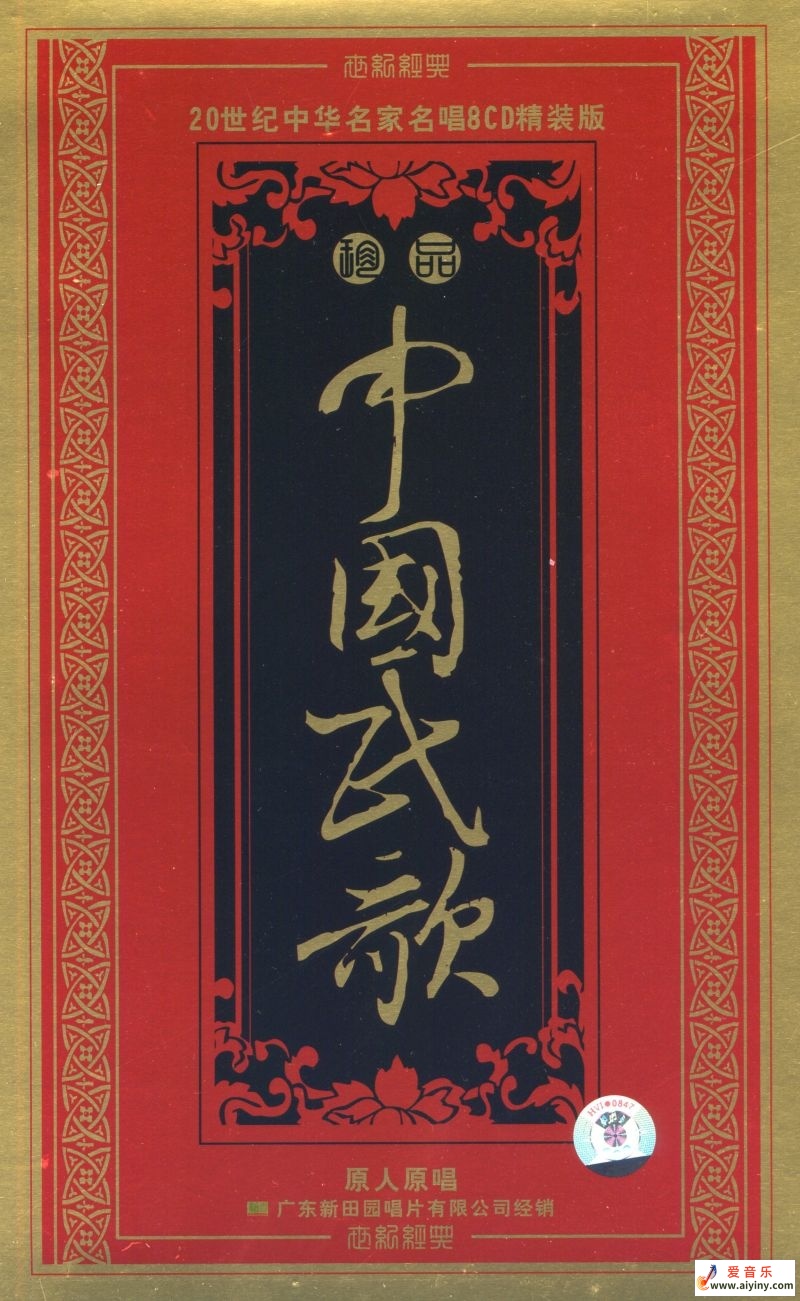 世纪經典
20世纪中华名家名唱8CD精装版
珍品
中國民歌
HVI●0847
原人原唱
广东新田园唱片有限公司经销
世纪經典
爱音乐
www.aiyiny.com